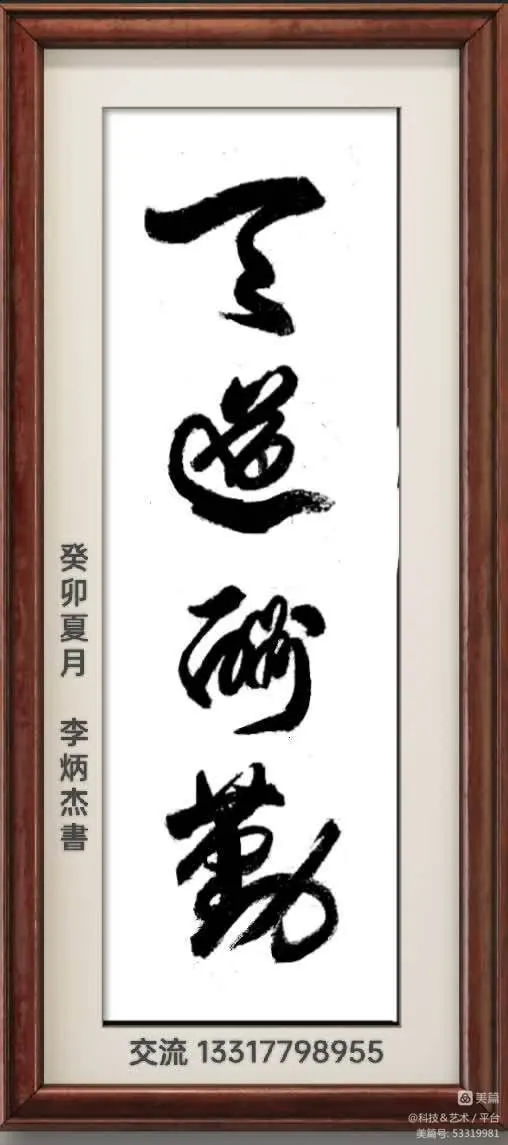 天道酬勤
癸卯夏月 李炳杰書
交流 13317798955
美篇
@科技&艺术 / 平台
美篇号: 53319981